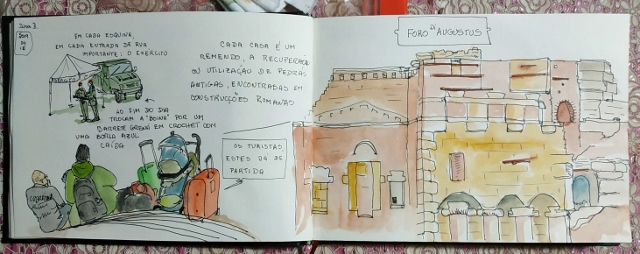 EM CADA ESQUINA,
EM CADA ENTRADA DA RUA
IMPORTANTE: O EXÉRCITO
CADA CASA É UM
REMENDO, A RECUPERAÇÃO
OU UTILIZAÇÃO DE PEDRAS
ANTIGAS, ENCONTRADAS EM
CONSTRUÇÕES ROMANAS
AO FIM DO DIA
TROCAM A "BOINA" POR UM
BARRETE GRENÁ EM CROCHET COM
UMA BORLA AZUL
CAÍDA
OS TURISTAS,
ESTES JÁ DE
PARTIDA
FORO DE AUGUSTUS